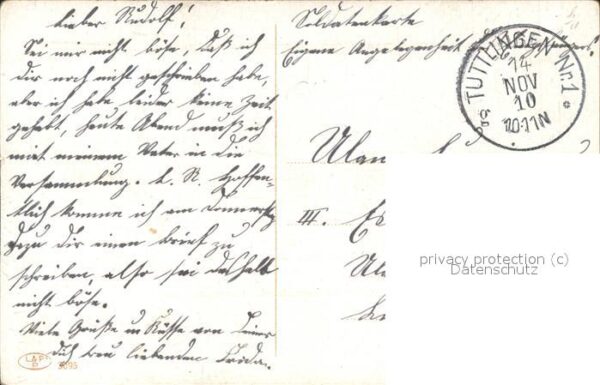 Lieber Rudolf!
Sei mir nicht böse, daß ich
dir noch nicht geschrieben habe,
aber ich habe leider keine Zeit
gehabt, heute Abend muß ich
mit meinem Vater in die
Versammlung. d. R. Hoffen-
tlich komme ich am Donnerstag
dazu dir einen Brief zu
schreiben, also sei deshalb
nicht böse.
Viele Grüße u Küsse von deiner
dich treu liebenden Frida.
Soldatenkarte
Eigene Angelegenheit des Empfängers.
TUTTLINGEN Nr.1
14
NOV
10
10-11N
Ulan
III.
Ul
privacy protection (c)
Datenschutz
5095